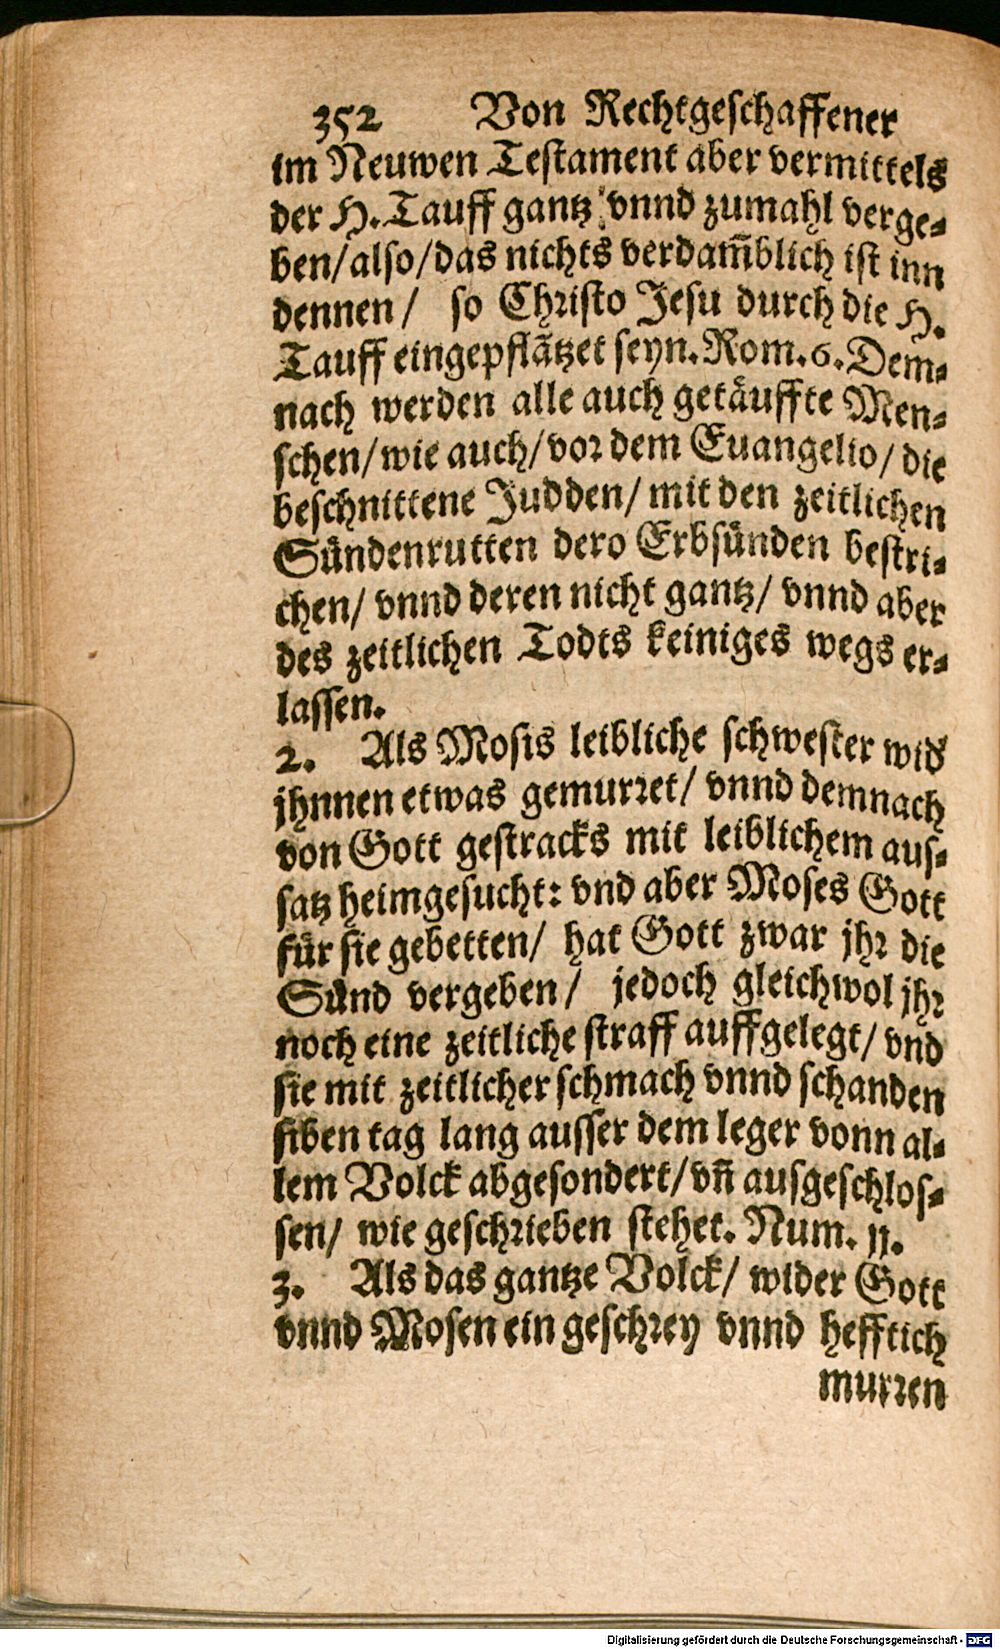 352 Von Rechtgeschaffener
im Neuwen Testament aber vermittels
der H. Tauff gantz vnnd zumahl verge⸗
ben/also/das nichts verdam̄blich ist inn
dennen/ so Christo Jesu durch die H.
Tauff eingepflãtzet seyn. Rom. 6. Dem⸗
nach werden alle auch getäuffte Men⸗
schen/wie auch/vor dem Euangelio/die
beschnittene Judden/ mit den zeitlichen
Sündenrutten dero Erbsünden bestri⸗
chen/ vnnd deren nicht gantz/ vnnd aber
des zeitlichen Todts keiniges wegs er⸗
lassen.
2. Als Mosis leibliche schwester wid'
jhnnen etwas gemurret/ vnnd demnach
von Gott gestracks mit leiblichem aus⸗
satz heimgesucht: vnd aber Moses Gott
für sie gebetten/ hat Gott zwar jhr die
Sünd vergeben/ jedoch gleichwol jhr
noch eine zeitliche straff auffgelegt/ vnd
sie mit zeitlicher schmach vnnd schanden
siben tag lang ausser dem leger vonn al⸗
lem Volck abgesondert/vn̄ ausgeschlos⸗
sen/ wie geschrieben stehet. Num. 11.
3. Als das gantze Volck/ wider Gott
vnnd Mosen ein geschrey vnnd hefftich
murren
Digitalisierung gefördert durch die Deutsche Forschungsgemeinschaft - DFG